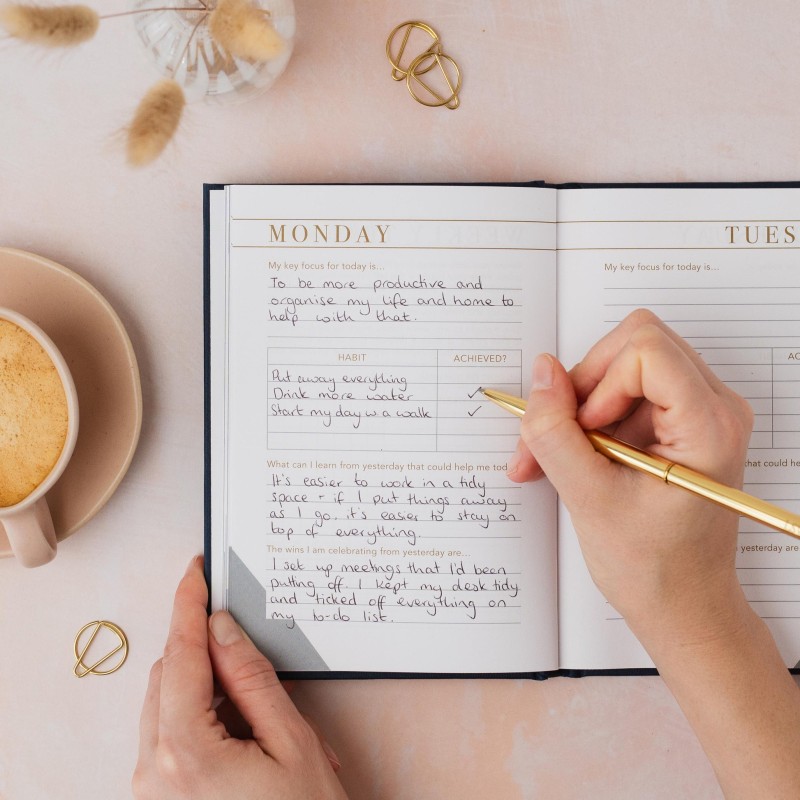 MONDAY
My key focus for today is...
To be more productive and
organise my life and home to
help with that.
HABIT ACHIEVED?
Put away everything
Drink more water ✓
Start my day w a walk ✓
What can I learn from yesterday that could help me tod
It's easier to work in a tidy
space + if I put things away
as I go, it's easier to stay on
top of everything.
The wins I am celebrating from yesterday are...
I set up meetings that I'd been
putting off. I kept my desk tidy
and ticked off everything on
my to-do list.
TUES
My key focus for today is...
AC
that could help
yesterday are...